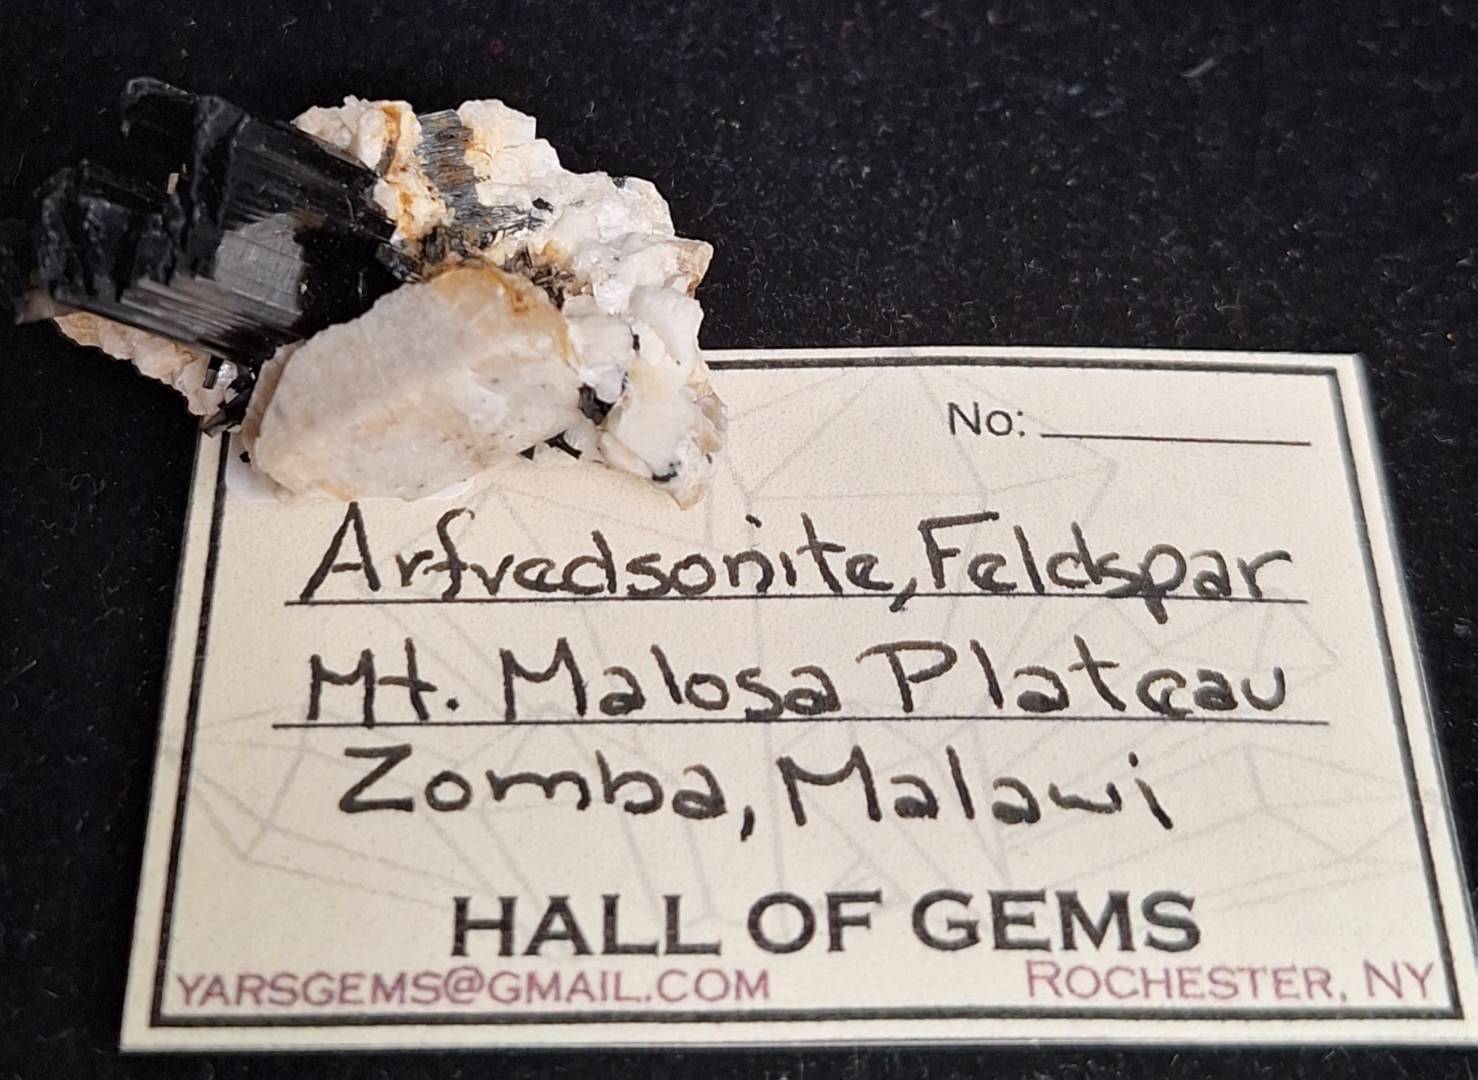 No:
Arfvedsonite, Feldspar
Mt. Malosa Plateau
Zomba, Malawi
HALL OF GEMS
YARSGEMS@GMAIL.COM ROCHESTER, NY